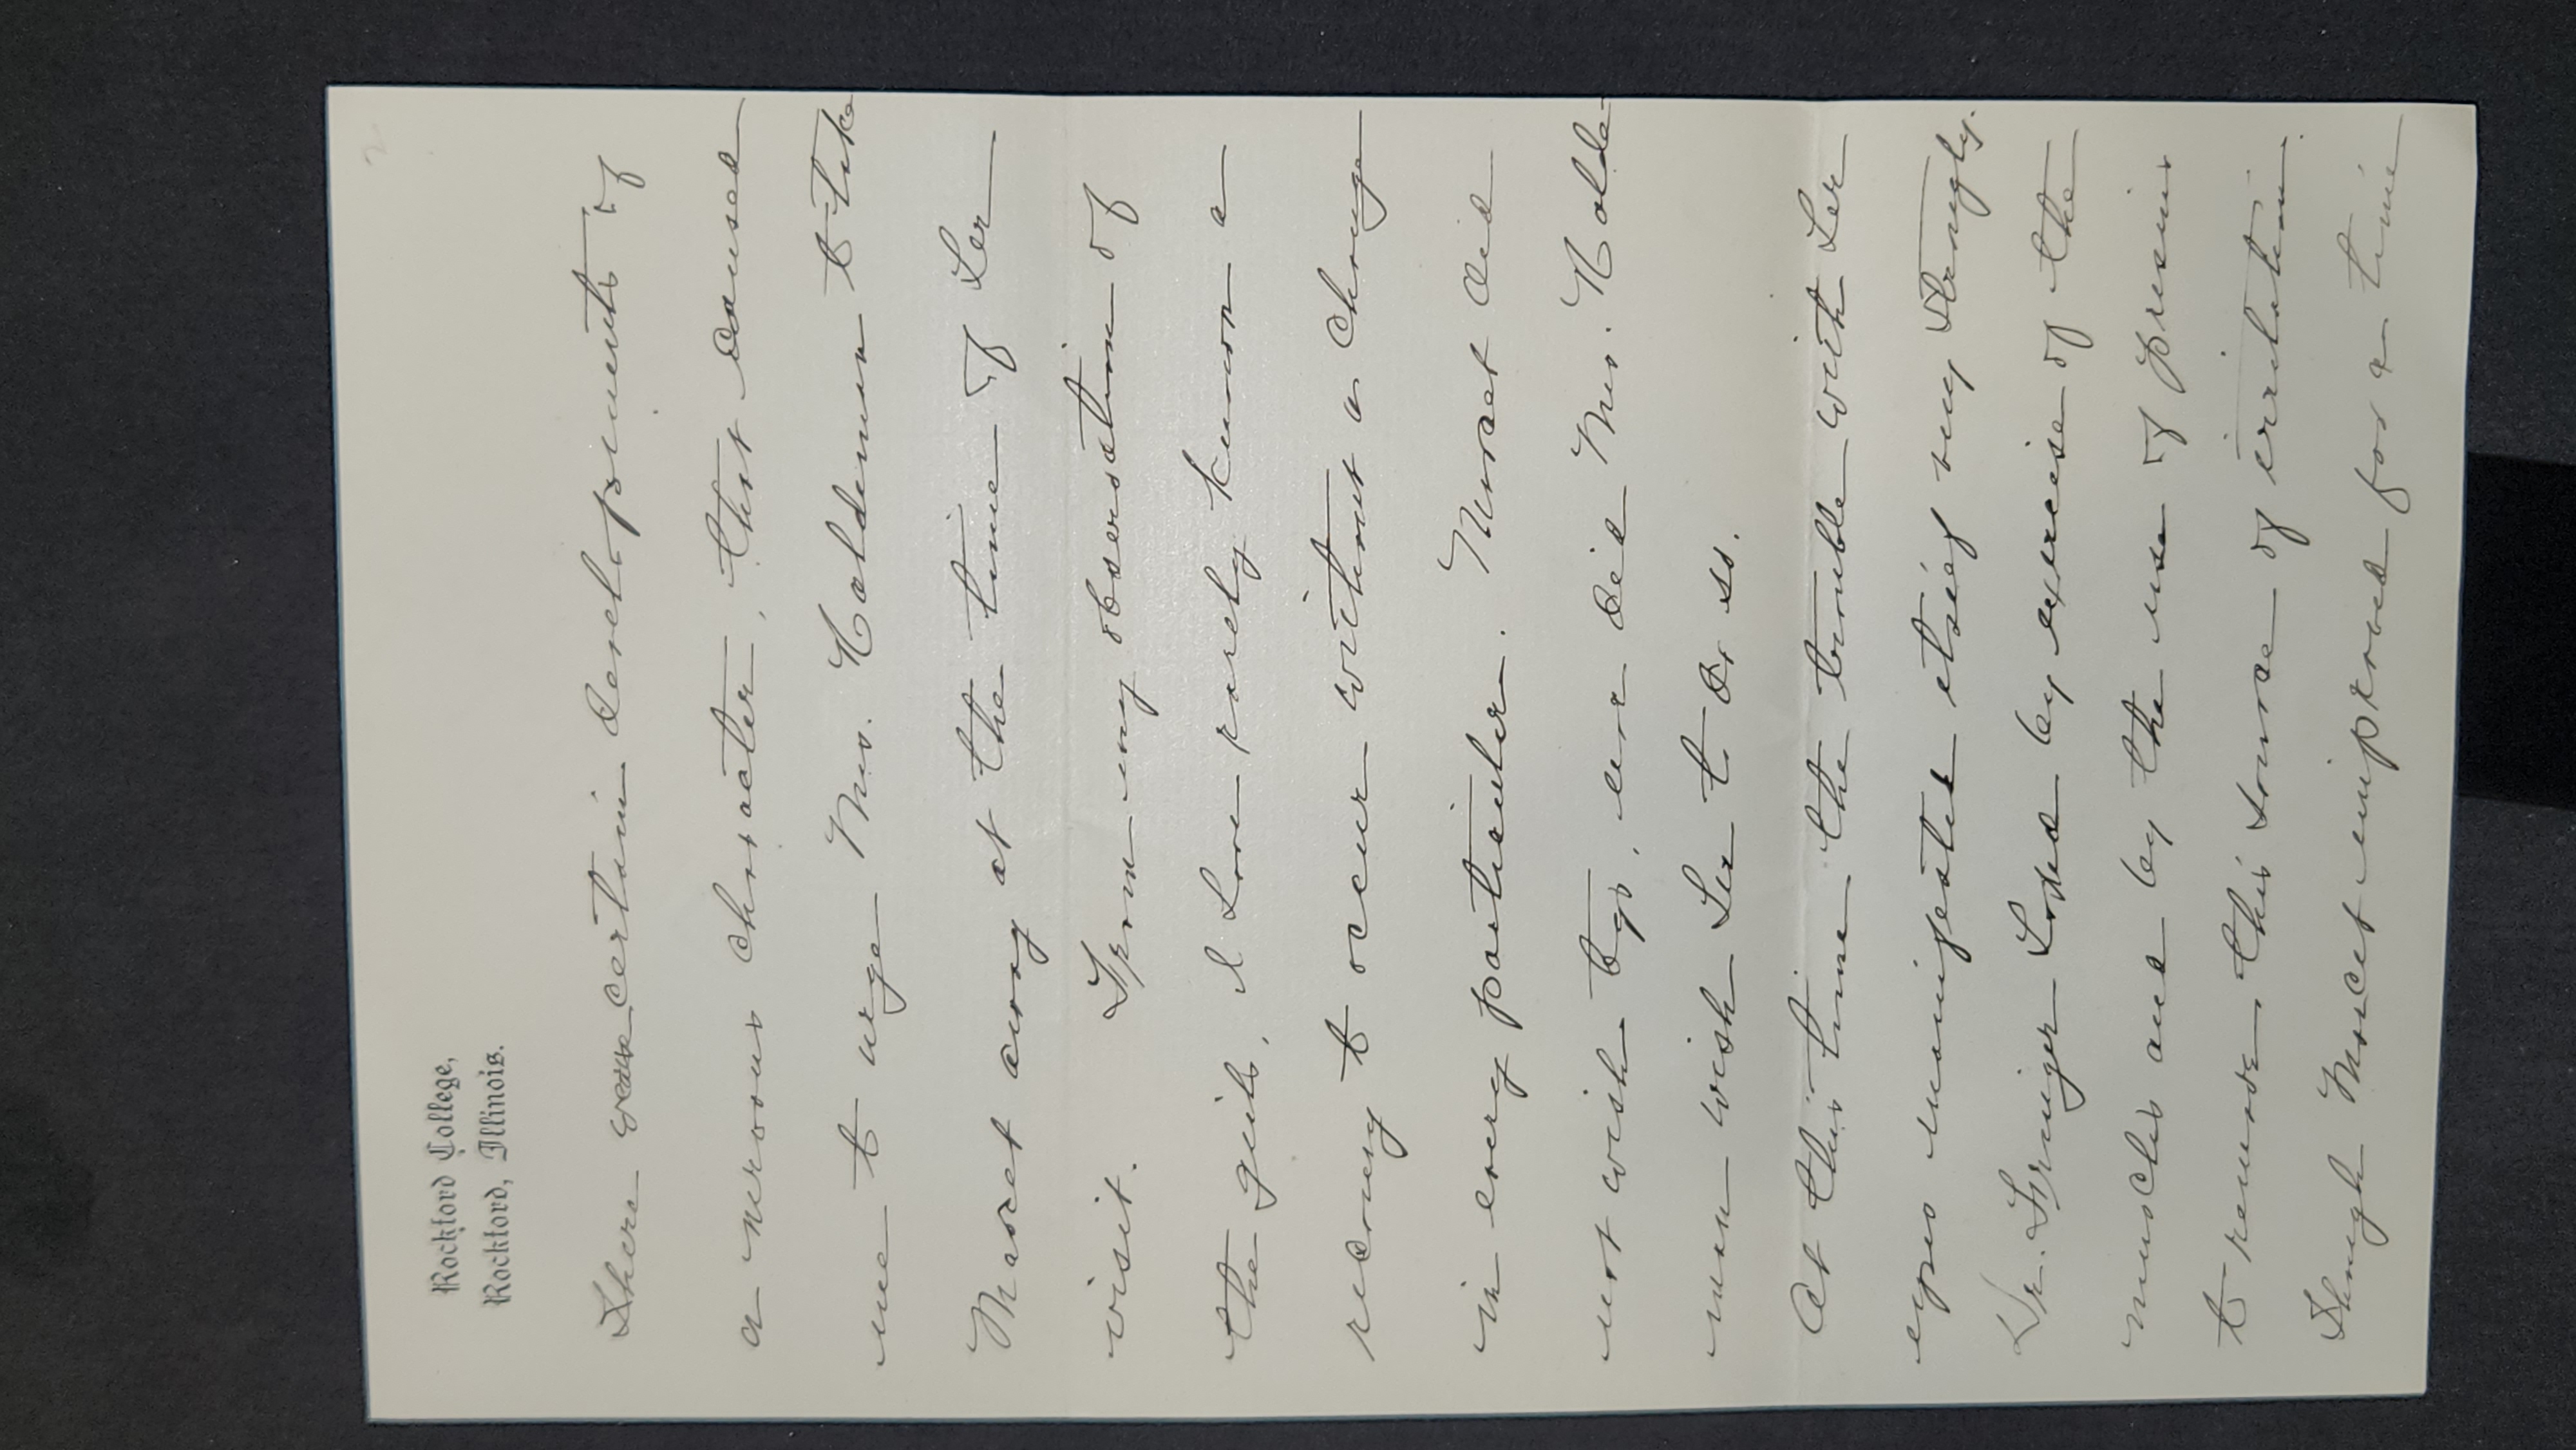 2
Rockford College,
Rockford, Illinois.
There were certain developments of
a nervous character, that caused
me to urge Mrs. Haldeman to take
Marcet away at the time of her
visit. From my observation of
the girls, I have rarely known a
recovery to occur without a change
in every particular. Marcet did
not wish to go, nor did Mrs. Halde-
man wish her to do so.
At this time the trouble with her
eyes manifested itself very strongly.
Dr. Fringer hoped by exercise of the
muscles and by the use of prisms
to remove this source of irritation.
Though Marcet improved for a time